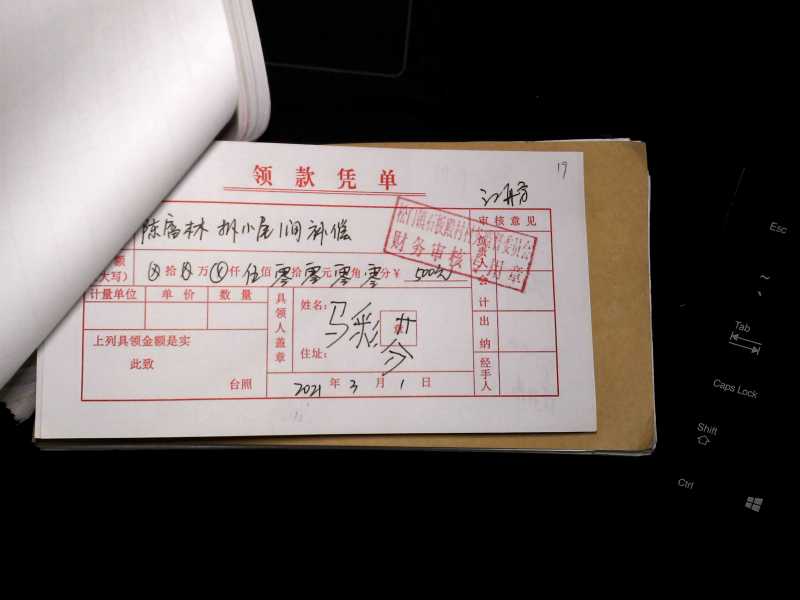 19
领款凭单
审核意见
陈富林 拆小屋1间补偿
财务审核专用章
额
(大写) ⊗ 拾 ⊗ 万 ⊗ 仟 伍 佰 零 拾 零 元 零 角 零 分 ¥ 500元
计量单位 单价 数量
具领人盖章
姓名: 马彩
章
住址:
上列具领金额是实
此致
台照
2021 年 3 月 1 日
会计
出纳
经手人
Esc
~
、
Tab
Caps Lock
Shift
Ctrl